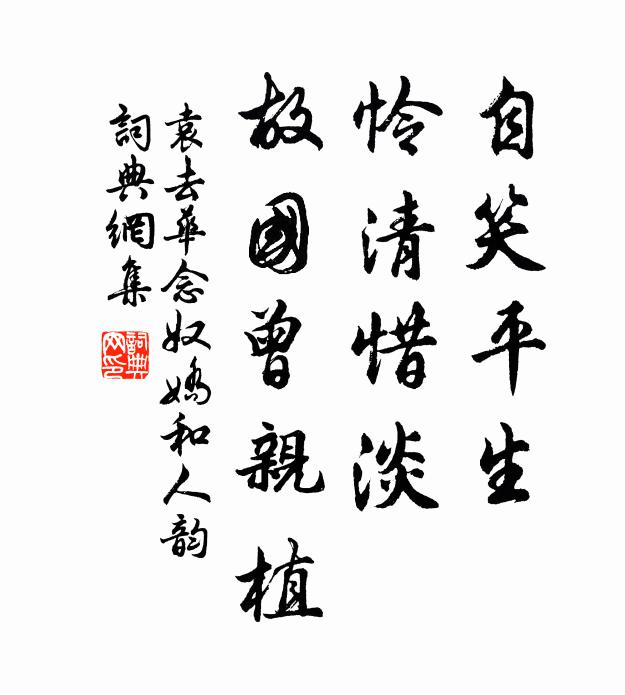 自笑平生
怜清惜淡
故國曾親植
袁去華念奴嬌和人韵
詞典網集
詞典
网印